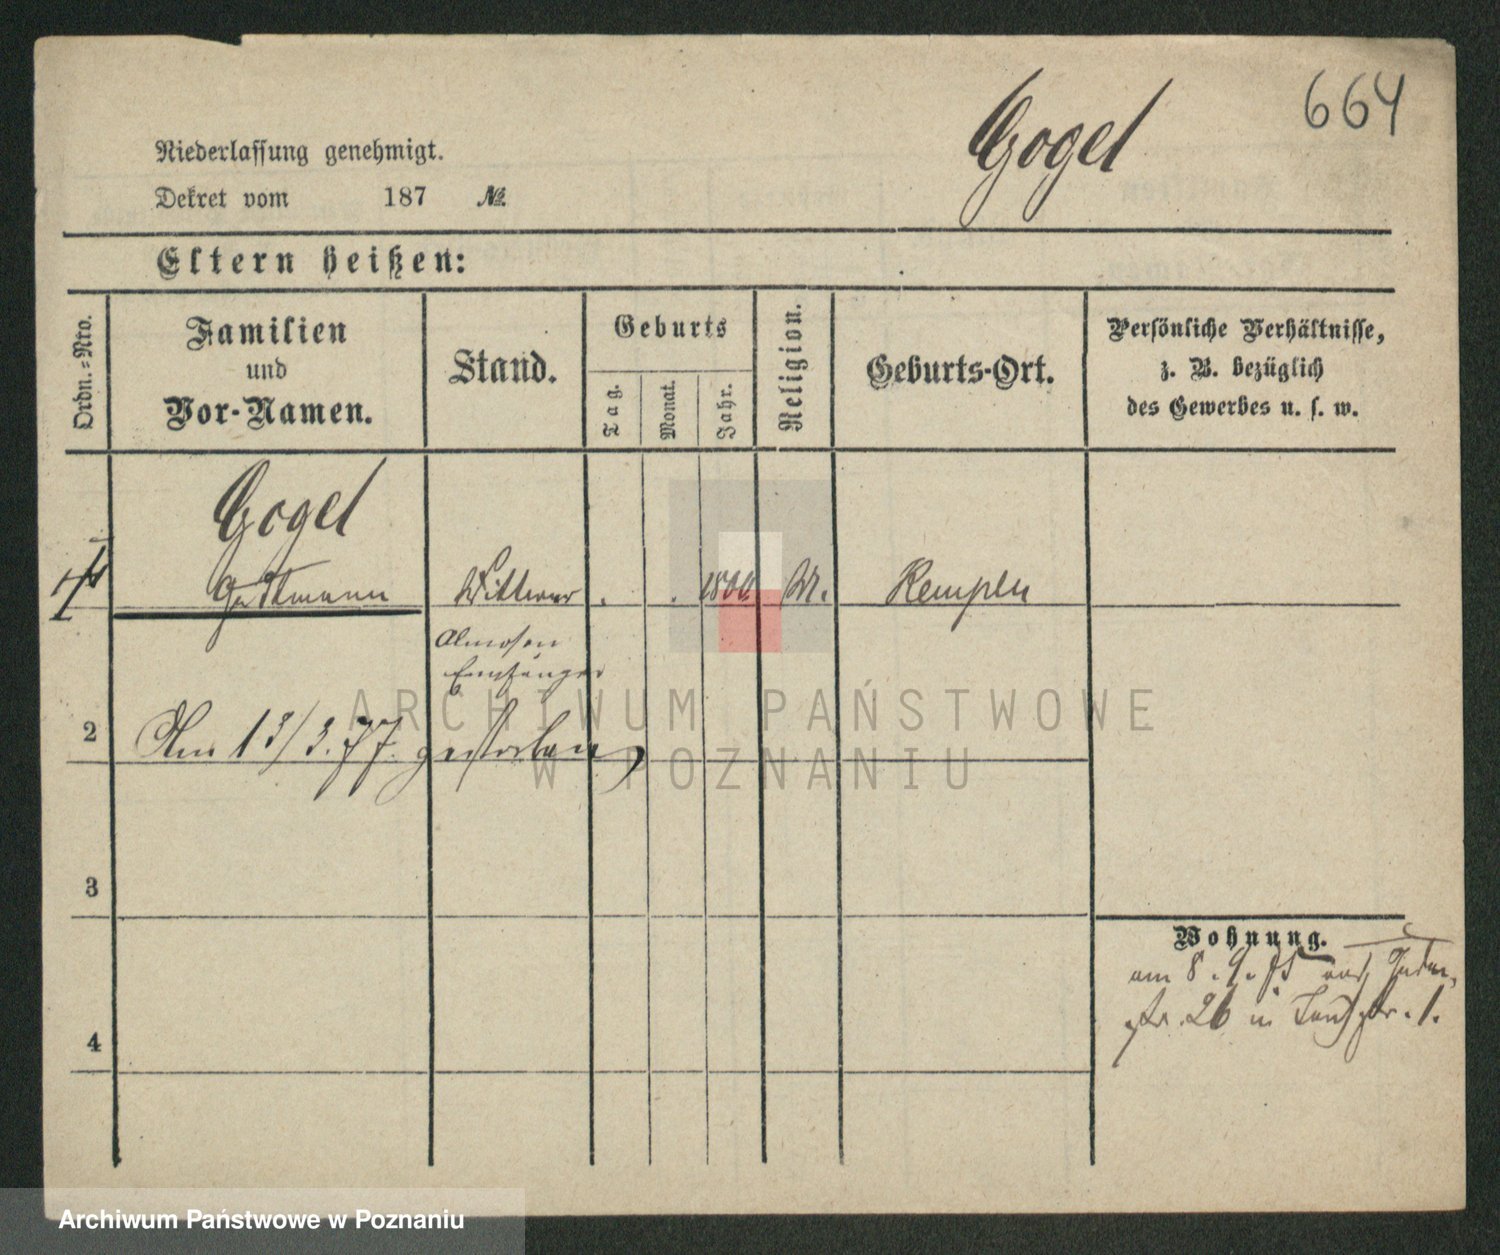 664
Gogel
Niederlassung genehmigt.
Dekret vom 187 №
Eltern heißen:
Ordn.-Nro.
Familien
und
Vor-Namen.
Stand.
Geburts
Tag.
Monat.
Jahr.
Religion.
Geburts-Ort.
Persönliche Verhältnisse,
z. B. bezüglich
des Gewerbes u. s. w.
Gogel
1 Guttmann Wittwer . . 1800 M. Kempen
Almosen
Empfänger
2 Am 13/3.77. gestorben
3
4
Wohnung.
am 8.9. Juden-
str. 26 str. 1.
ARCHIWUM PAŃSTWOWE
W POZNANIU
Archiwum Państwowe w Poznaniu